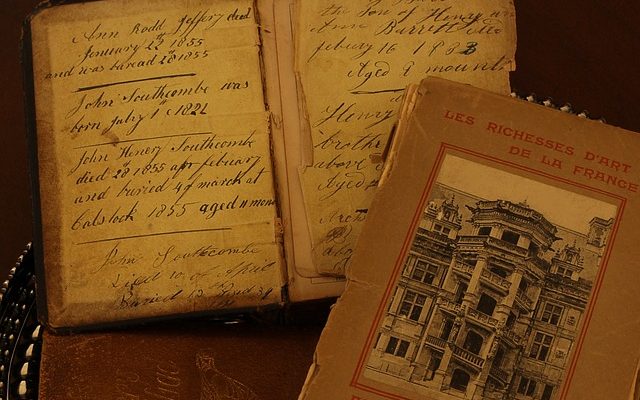 Ann Rodd Jeffery died
January 22th 1855
and was buread 28 1855
John Southcombe was
born July 1th 1821
John Henery Southcombe
died 28 1855 febuary
and buried 4 of march at
1855 aged 11 mon
John Southcombe
Died 10 of April
Buried 13
the Son of Henery an
Ann Burrell
febury 16 1883
Aged 8 mount
Henry
brothe
above
Aged
LES RICHESSES D'ART
DE LA FRANCE